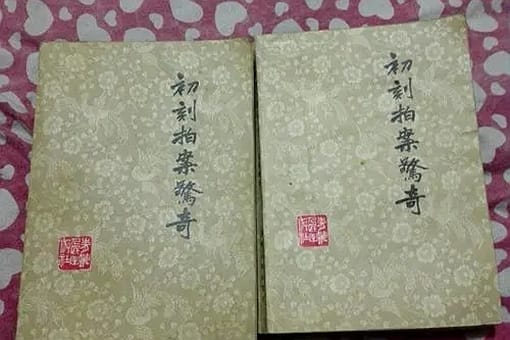 初刻拍案驚奇
初刻拍案驚奇